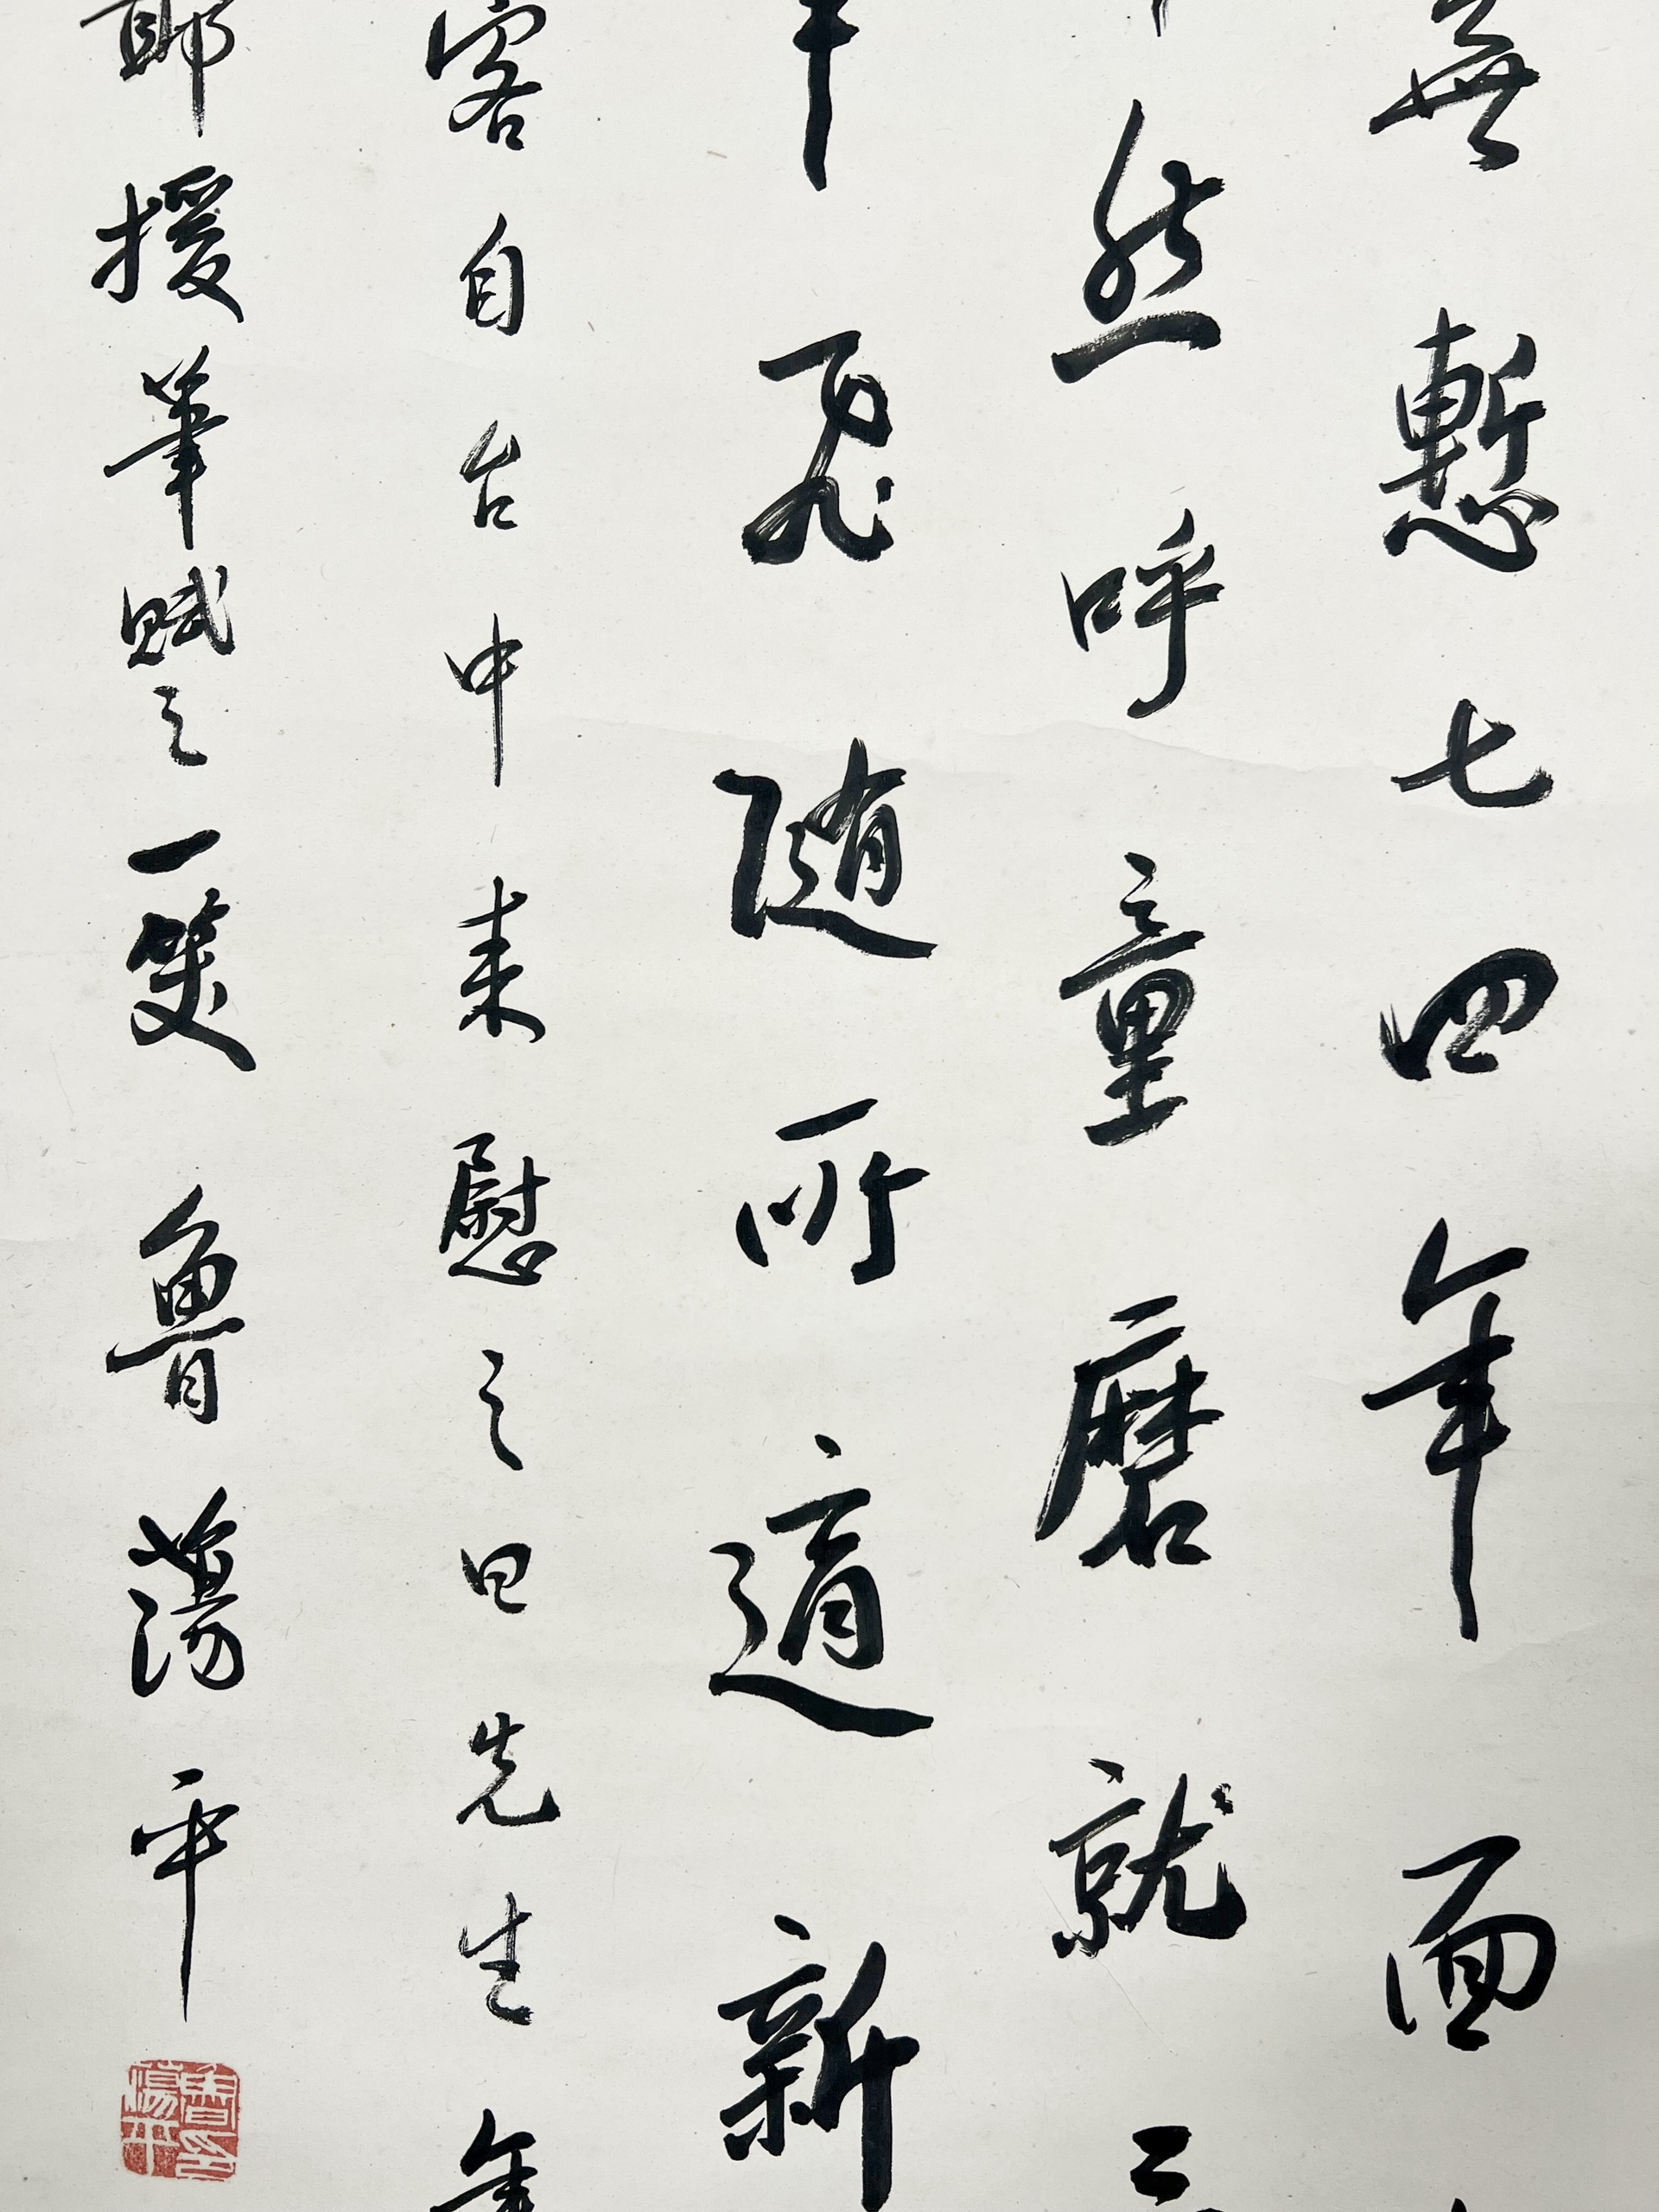 無慙七四年面
然呼童磨就三
飛随所適新
客自台中来慰之曰先生年
耶援筆賦之一笑魯蕩平
魯蕩平印